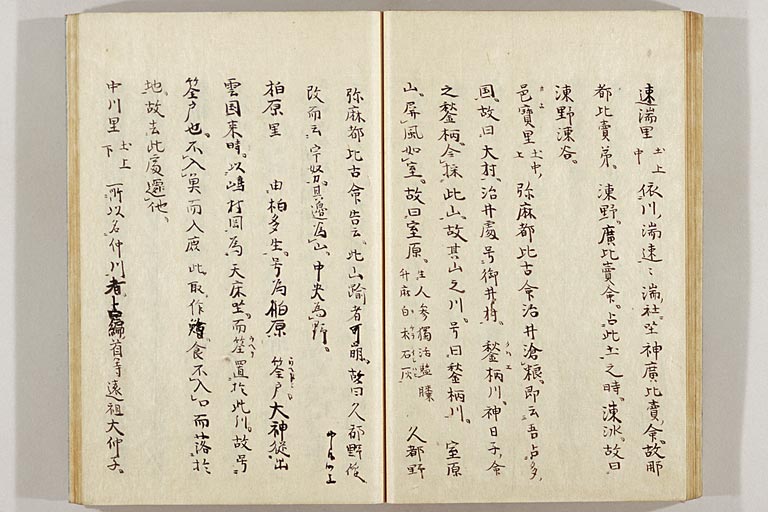 速湍里 土上中 依川湍速々湍社坐神廣比賣命故那
都比賣弟 凍野廣比賣命占此土之時凍氷故曰
凍野凍谷
邑寶里 土中上 弥麻都比古命治井湌粮即云吾占多
国故曰大村治井處号御井村 鍫柄川神日子命
之鍫柄令採此山故其山之川号曰鍫柄川 室原
山屏風如室故曰室原 生人參獨活藍漆升麻白朮石灰 久都野
弥麻都比古命告云此山踰者可崩故曰久都野後
改而云宇努其邊為山中央為野
柏原里 由柏多生号為柏原 筌戸大神從出
雲国来時以嶋村岡為天床坐而筌置於此川故号
筌戸也不入奠而入鹿此取作鱠食不入口而落於
地故去此處遷他
中川里 土上下 所以名仲川者苫編首等遠祖大仲子